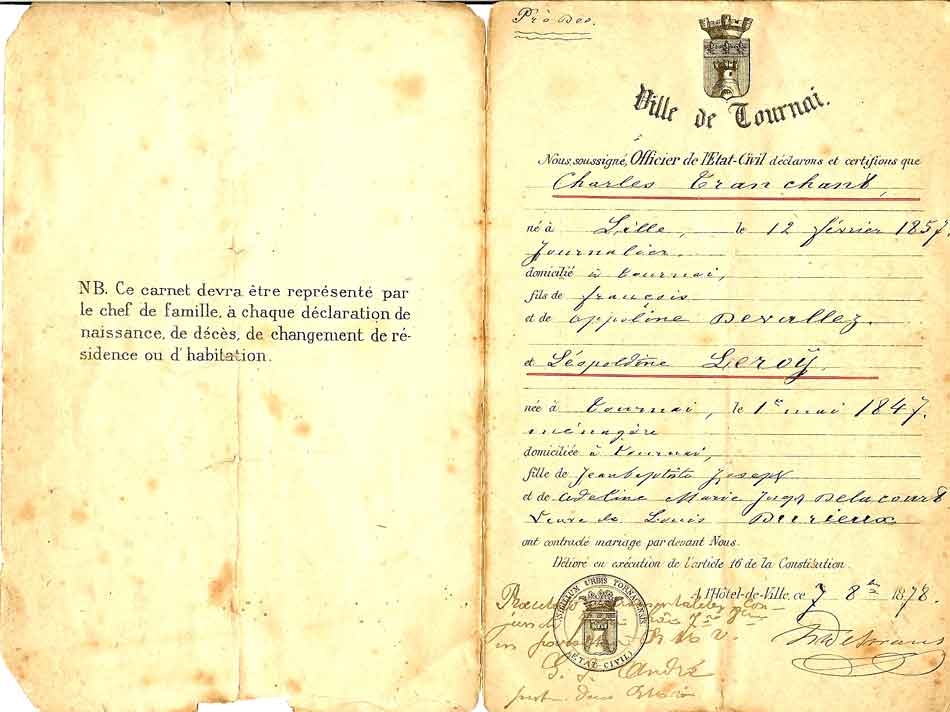 NB. Ce carnet devra être représenté par
le chef de famille, à chaque déclaration de
naissance, de décès, de changement de ré-
sidence ou d'habitation.
Pro Deo.
Ville de Tournai.
Nous soussigné, Officier de l'Etat-Civil déclarons et certifions que
Charles Tranchant,
né à Lille, le 12 février 1857,
Journalier
domicilié à tournai,
fils de françois
et de Appoline Devallez.
et Léopoldine Leroÿ,
née à Tournai, le 1er mai 1847.
ménagère
domiciliée à tournai,
fille de Jeanbaptiste Joseph
et de Adeline Marie Delacourt
Veuve de Louis Durieux
ont contracté mariage par devant Nous.
Délivré en exécution de l'article 16 de la Constitution.
A l'Hôtel-de-Ville, ce 7 8bre 1878.
SIGILLUM URBIS TORNACENSIS
(ETAT-CIVIL)
André